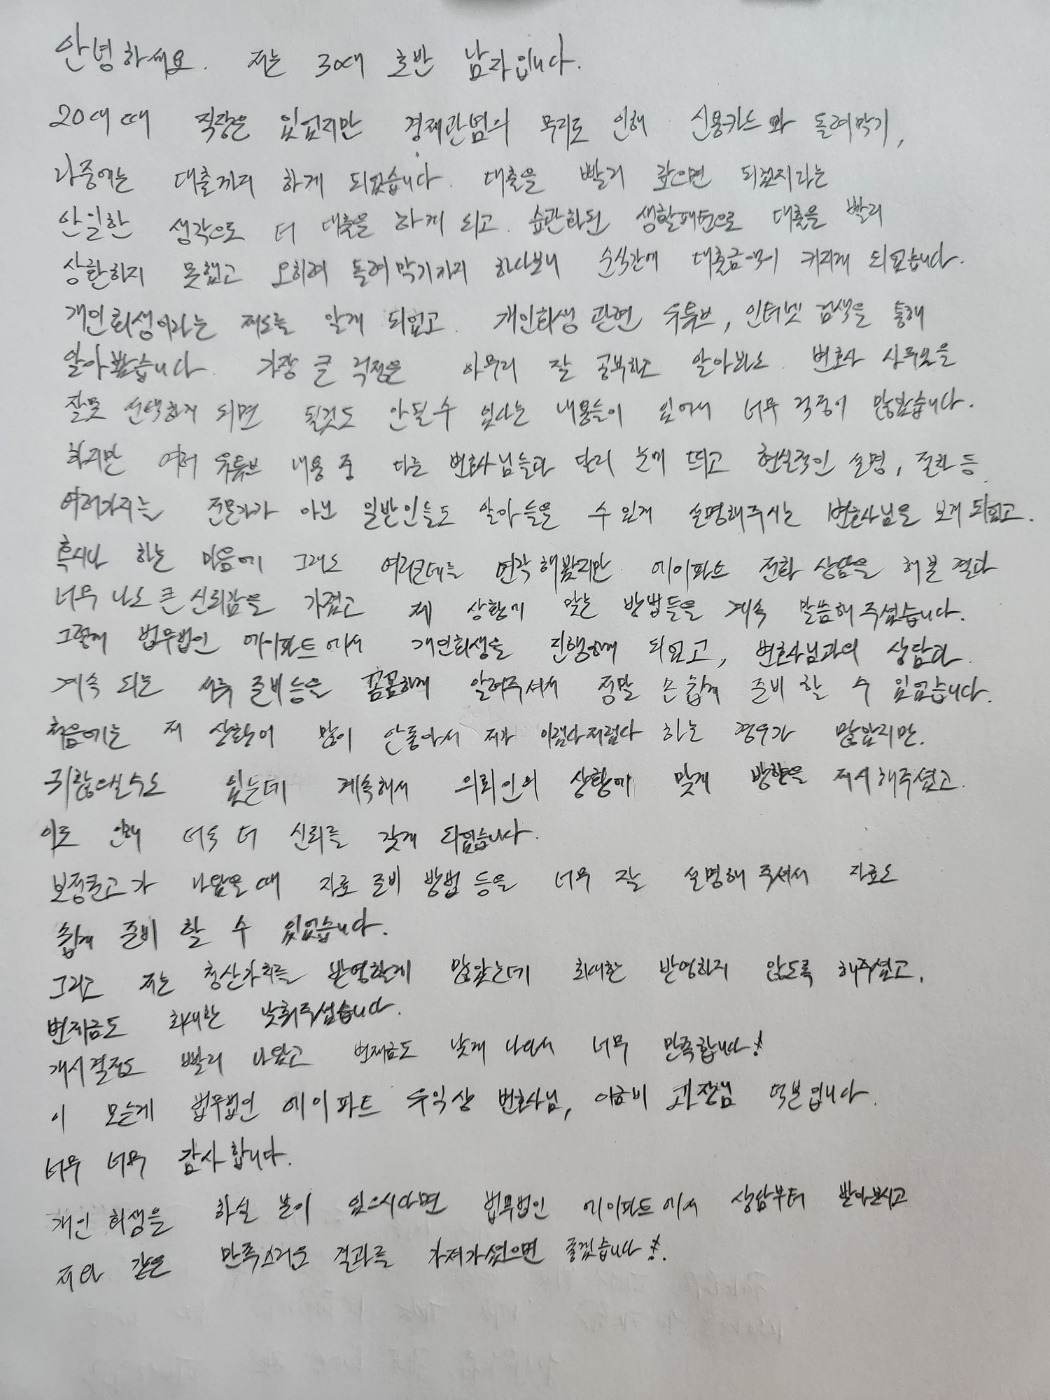 안녕하세요. 저는 30대 초반 남자입니다.
20대 때 직장은 있었지만 경제관념의 무지로 인해 신용카드와 돌려막기,
나중에는 대출까지 하게 되었습니다. 대출을 빨리 갚으면 되겠지라는
안일한 생각으로 더 대출을 하게 되고. 습관화된 생활패턴으로 대출을 빨리
상환하지 못했고 오히려 돌려막기까지 하다보니 순식간에 대출금액이 커지게 되었습니다.
개인회생이라는 제도를 알게 되었고. 개인회생 관련 유튜브, 인터넷 검색을 통해
알아봤습니다. 가장 큰 걱정은 아무리 잘 공부하고 알아봐도 변호사 사무실을
잘못 선택하게 되면 될것도 안될수 있다는 내용들이 있어서 너무 걱정이 많았습니다.
하지만 여러 유튜브 내용 중 다른 변호사님들과 달리 눈에 띄고 현실적인 설명, 절차 등
여러가지를 전문가가 아닌 일반인들도 알아들을 수 있게 설명해주시는 변호사님을 보게되었고.
혹시나 하는 마음에 그래도 여러군데는 연락해봤지만 에이파트 전화 상담을 해본 결과
너무 나도 큰 신뢰감을 가졌고 제 상황에 맞는 방법들을 계속 말씀해주셨습니다.
그렇게 법무법인 에이파트에서 개인회생을 진행하게 되었고, 변호사님과의 상담과
계속 되는 서류 준비등을 꼼꼼하게 알려주셔서 정말 손쉽게 준비 할 수 있었습니다.
처음에는 제 상황이 많이 안좋아서 제가 이랬다저랬다 하는 경우가 많았지만.
귀찮으실수도 있는데 계속해서 의뢰인의 상황에 맞게 방향을 제시해주셨고.
이로 인해 더욱 더 신뢰를 갖게 되었습니다.
보정권고가 나왔을때 자료 준비 방법 등을 너무 잘 설명해 주셔서 자료도
쉽게 준비 할 수 있었습니다.
그리고 저는 청산가치를 반영할게 많았는데 최대한 반영하지 않도록 해주셨고.
변제금도 최대한 낮춰주셨습니다.
개시결정도 빨리 나왔고 변제금도 낮게 나와서 너무 만족합니다!
이 모든게 법무법인 에이파트 우익상 변호사님, 과장님 덕분입니다.
너무 너무 감사합니다.
개인 회생을 하실 분이 있으시다면 법무법인 에이파트에서 상담부터 받아보시고
저와 같은 만족스러운 결과를 가져가셨으면 좋겠습니다!.